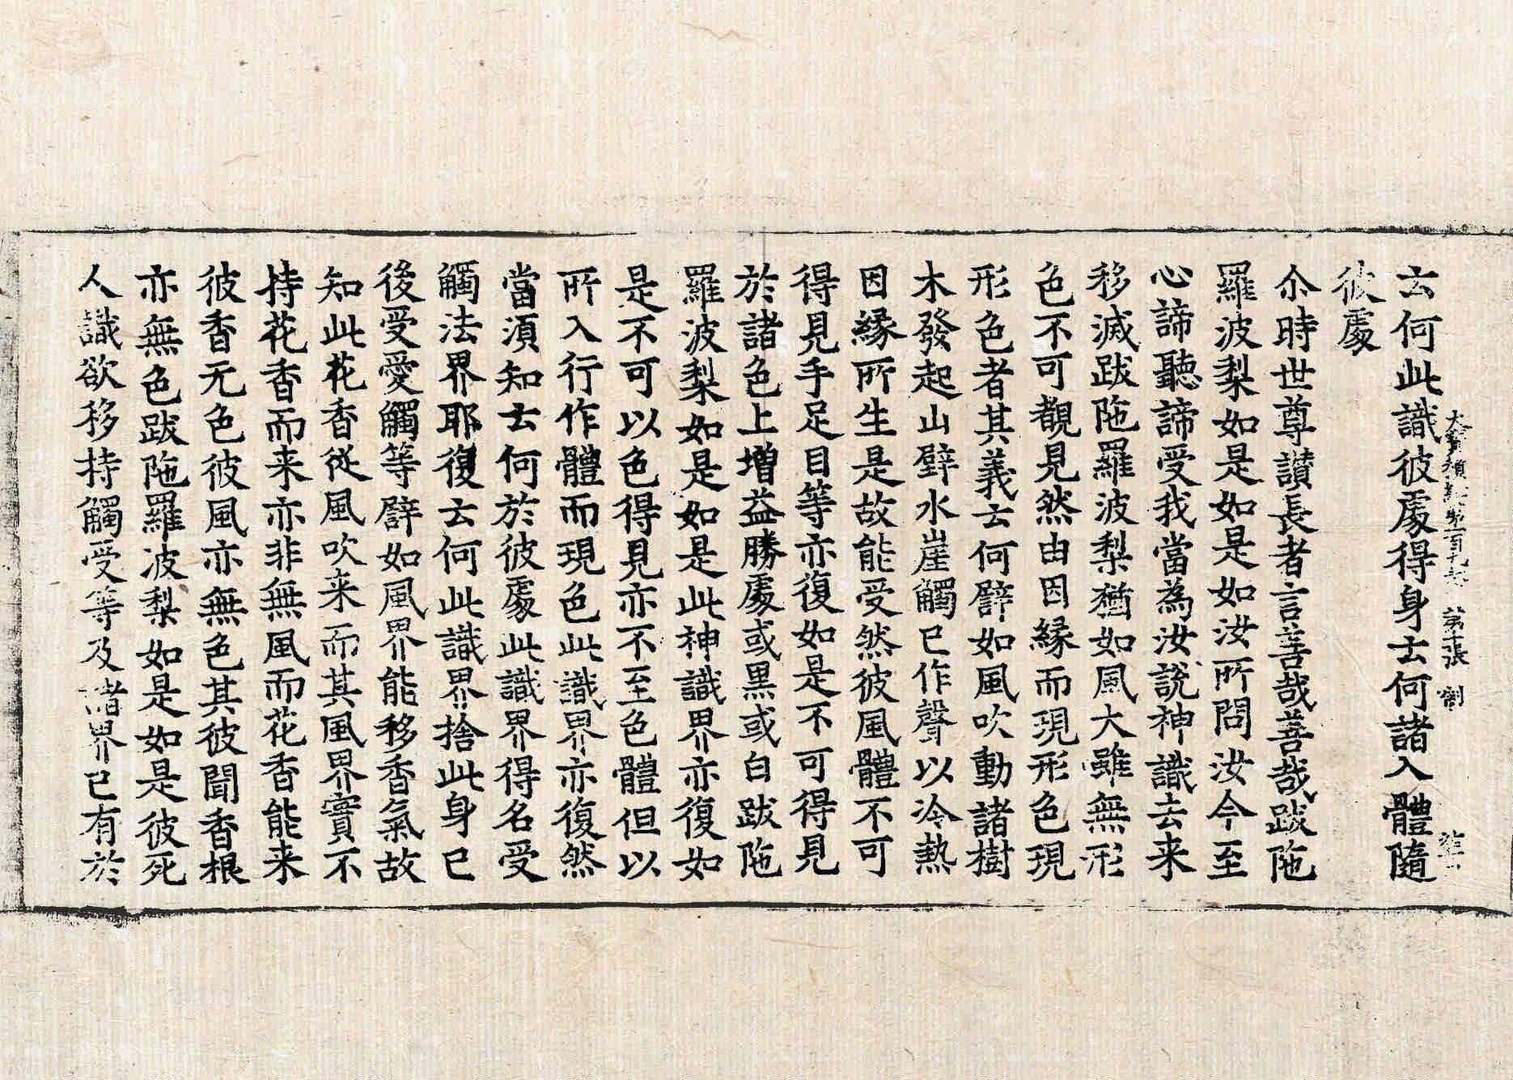 云何此識彼處得身云何諸入體隨
彼處
大寶積經第一百九卷 第十張 制
尒時世尊讃長者言善哉善哉跋陁
羅波梨如是如是如汝所問汝今至
心諦聽諦受我當為汝說神識去来
移滅跋陁羅波梨猶如風大雖無形
色不可覩見然由因緣而現形色現
形色者其義云何譬如風吹動諸樹
木發起山壁水崖觸已作聲以冷熱
因緣所生是故能受然彼風體不可
得見手足目等亦復如是不可得見
於諸色上增益勝處或黒或白跋陁
羅波梨如是如是此神識界亦復如
是不可以色得見亦不至色體但以
所入行作體而現色此識界亦復然
當湏知云何於彼處此識界得名受
觸法界耶復云何此識界捨此身已
後受愛觸等譬如風界能移香氣故
知此花香從風吹来而其風界實不
持花香而来亦非無風而花香能来
彼香无色彼風亦無色其彼聞香根
亦無色跋陁羅波梨如是如是彼死
人識欲移持觸受等及諸界已有於